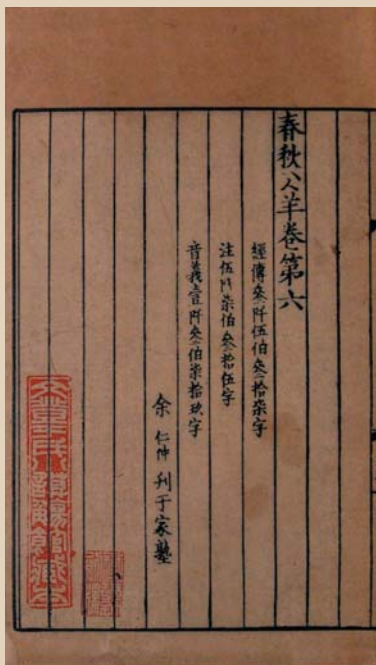 春秋公羊卷第六
經傳叁阡伍伯叁拾柒字
注伍阡柒伯叁拾伍字
音義壹阡叁伯柒拾玖字
余仁仲刊于家塾